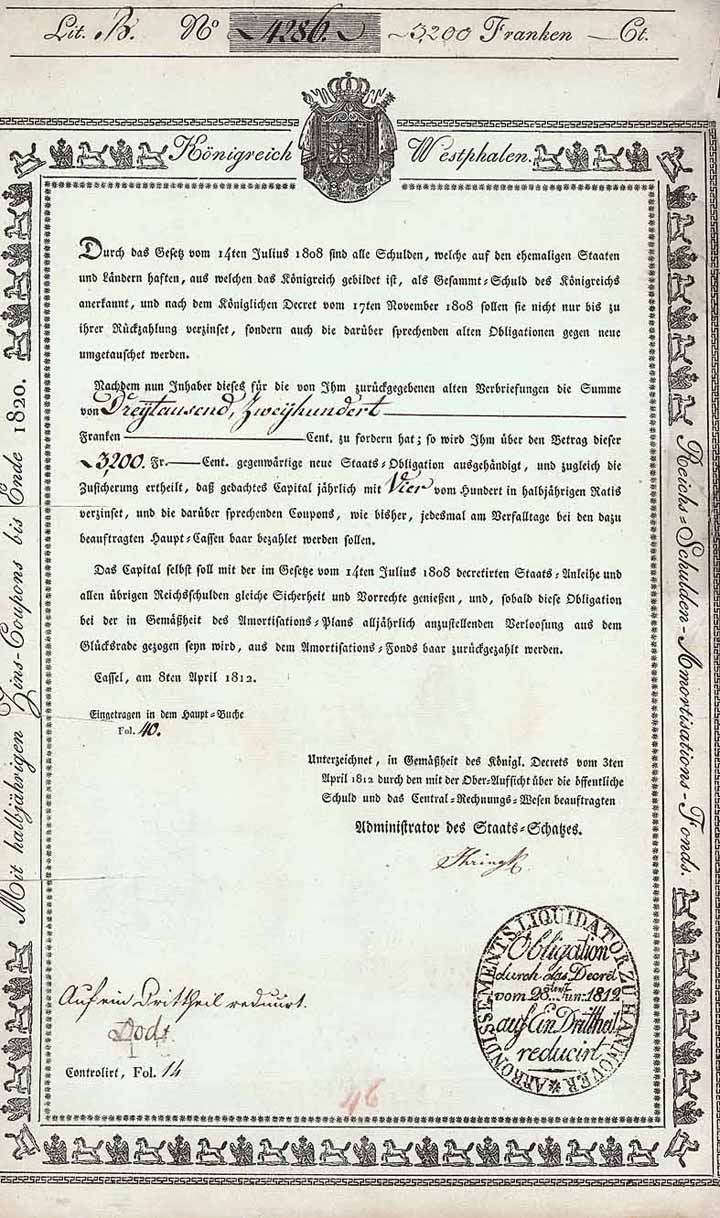 Lit. B. No 4286. 3200 Franken — Ct.
Königreich Westphalen.
Durch das Gesetz vom 14ten Julius 1808 sind alle Schulden, welche auf den ehemaligen Staaten
und Ländern haften, aus welchen das Königreich gebildet ist, als Gesammt-Schuld des Königreichs
anerkannt, und nach dem Königlichen Decret vom 17ten November 1808 sollen sie nicht nur bis zu
ihrer Rückzahlung verzinset, sondern auch die darüber sprechenden alten Obligationen gegen neue
umgetauschet werden.
Nachdem nun Inhaber dieses für die von Ihm zurückgegebenen alten Verbriefungen die Summe
von Dreytausend, Zweyhundert
Franken — Cent. zu fordern hat; so wird Ihm über den Betrag dieser
3200. Fr. — Cent. gegenwärtige neue Staats-Obligation ausgehändigt, und zugleich die
Zusicherung ertheilt, daß gedachtes Capital jährlich mit Vier vom Hundert in halbjährigen Ratis
verzinset, und die darüber sprechenden Coupons, wie bisher, jedesmal am Verfalltage bei den dazu
beauftragten Haupt-Cassen baar bezahlet werden sollen.
Das Capital selbst soll mit der im Gesetze vom 14ten Julius 1808 decretirten Staats-Anleihe und
allen übrigen Reichsschulden gleiche Sicherheit und Vorrechte genießen, und, sobald diese Obligation
bei der in Gemäßheit des Amortisations-Plans alljährlich anzustellenden Verloosung aus dem
Glücksrade gezogen seyn wird, aus dem Amortisations-Fonds baar zurückgezahlt werden.
Cassel, am 8ten April 1812.
Eingetragen in dem Haupt-Buche
Fol. 40.
Unterzeichnet, in Gemäßheit des Königl. Decrets vom 3ten
April 1812 durch den mit der Ober-Aufsicht über die öffentliche
Schuld und das Central-Rechnungs-Wesen beauftragten
Administrator des Staats-Schatzes.
Auf ein Drittheil reducirt.
Controlirt, Fol. 14
46
ARRONDISSEMENTS LIQUIDATOR ZU HANNOVER
Obligation
durch das Decret
vom 28sten Jun: 1812
auf Ein Drittheil
reducirt
Mit halbjährigen Zins-Coupons bis Ende 1820.
Reichs-Schulden-Amortisations-Fonds.